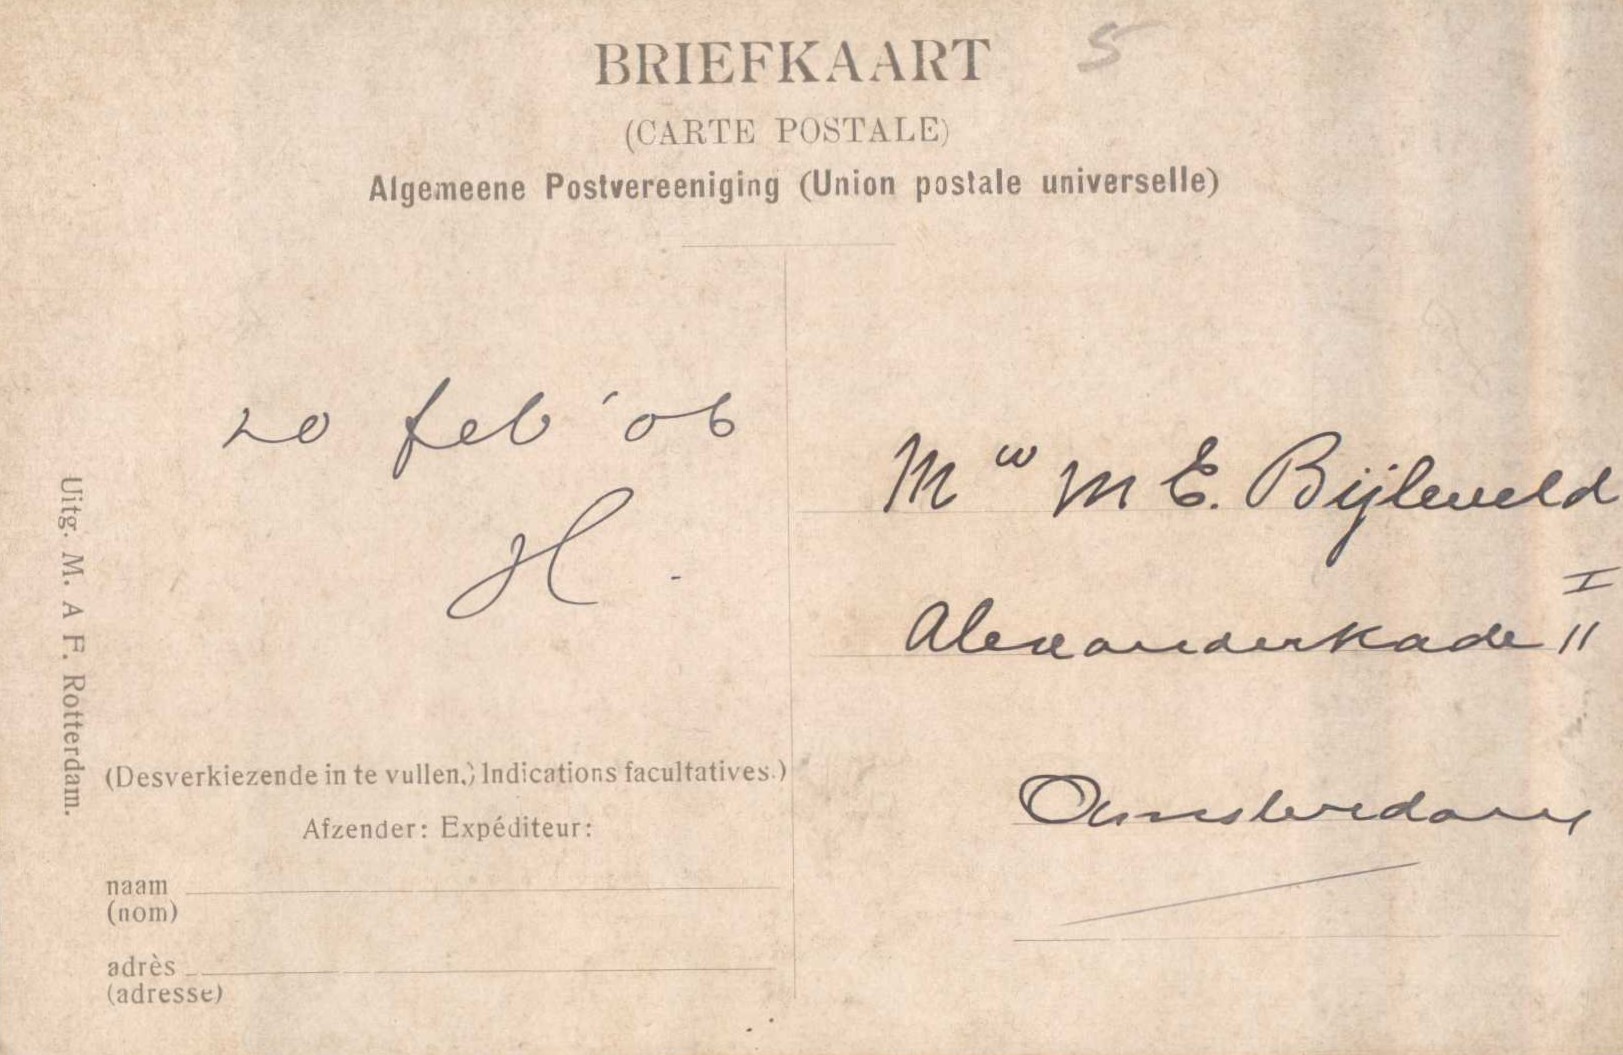 BRIEFKAART
5
(CARTE POSTALE)
Algemeene Postvereeniging (Union postale universelle)
20 feb '06
H.
Mw M E. Bijleveld
I
Alexanderkade 11
Amsterdam
Uitg. M. A F. Rotterdam.
(Desverkiezende in te vullen.) Indications facultatives.)
Afzender: Expéditeur:
naam
(nom)
adrès
(adresse)